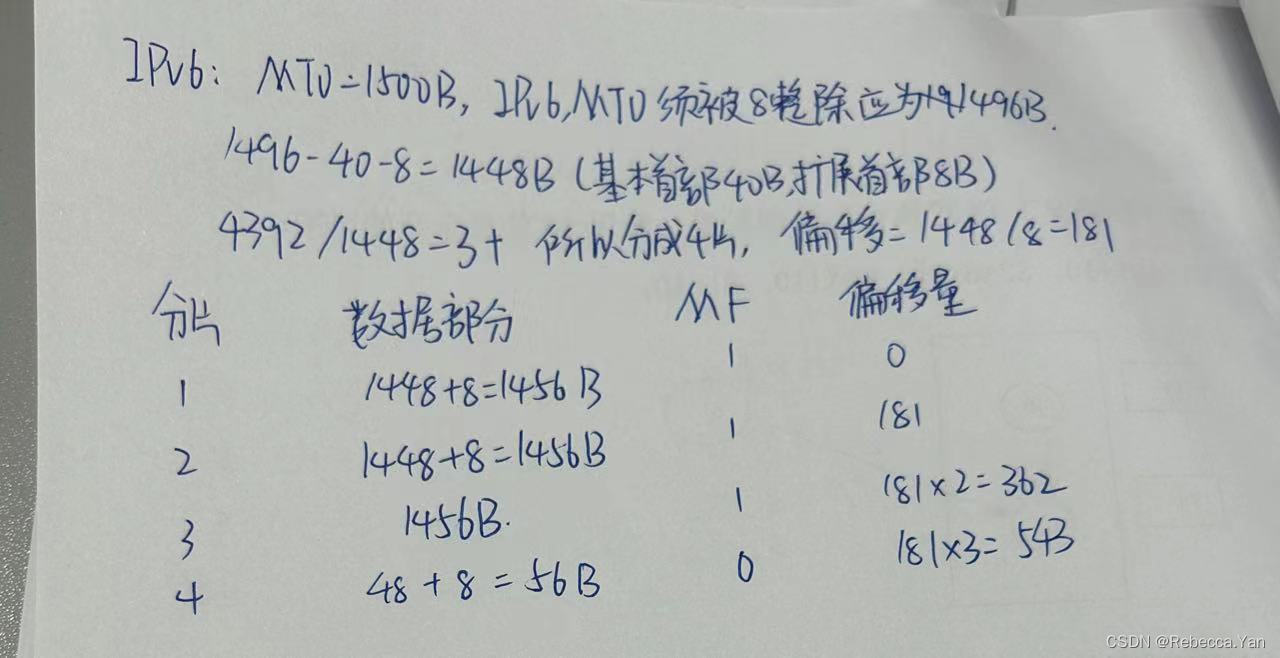 IPv6: MTU=1500B, IPv6,MTU须被8整除应为1496B.
1496-40-8=1448B(基本首部40B,扩展首部8B)
4392/1448=3+ 所以分成4片, 偏移=1448/8=181
分片 数据部分 MF 偏移量
1 1448+8=1456B 1 0
2 1448+8=1456B 1 181
3 1456B. 1 181×2=362
4 48+8=56B 0 181×3=543
CSDN @Rebecca.Yan